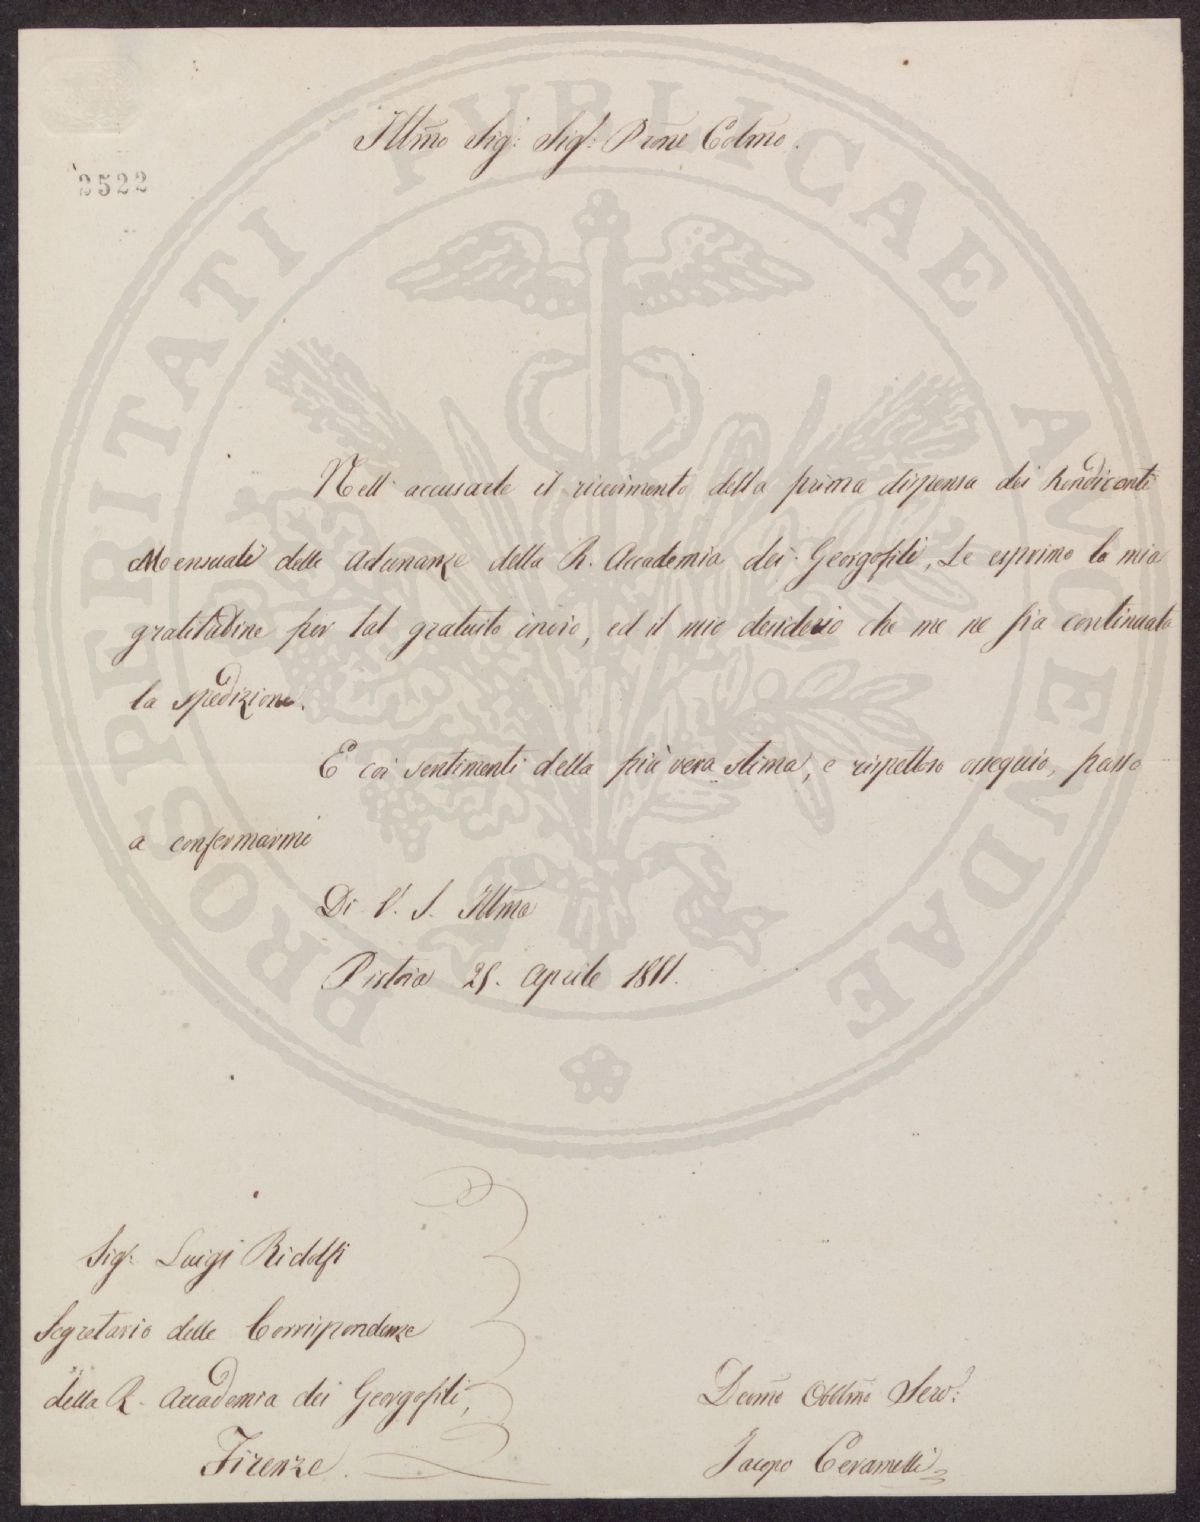 Illmo Sigr: Sigr: Prone Colmo.
2522
Nell' accusarle il ricevimento della prima dispensa dei Rendiconti
Mensuali delle Adunanze della R. Accademia dei Georgofili, Le esprimo la mia
gratitudine per tal gratuito invio, ed il mio desiderio che me ne sia continuata
la spedizione.
E coi sentimenti della più vera stima, e rispettoso ossequio, passo
a confermarmi
Di V. S. Illma
Pistoia Aprile
Sigr: Luigi Ridolfi
Segretario delle Corrispondenze
della R. Accademia dei Georgofili,
Firenze.
Devmo Obblmo Serv:
Jacopo Ceramelli
PROSPERITATI PVBLICAE AVGENDAE